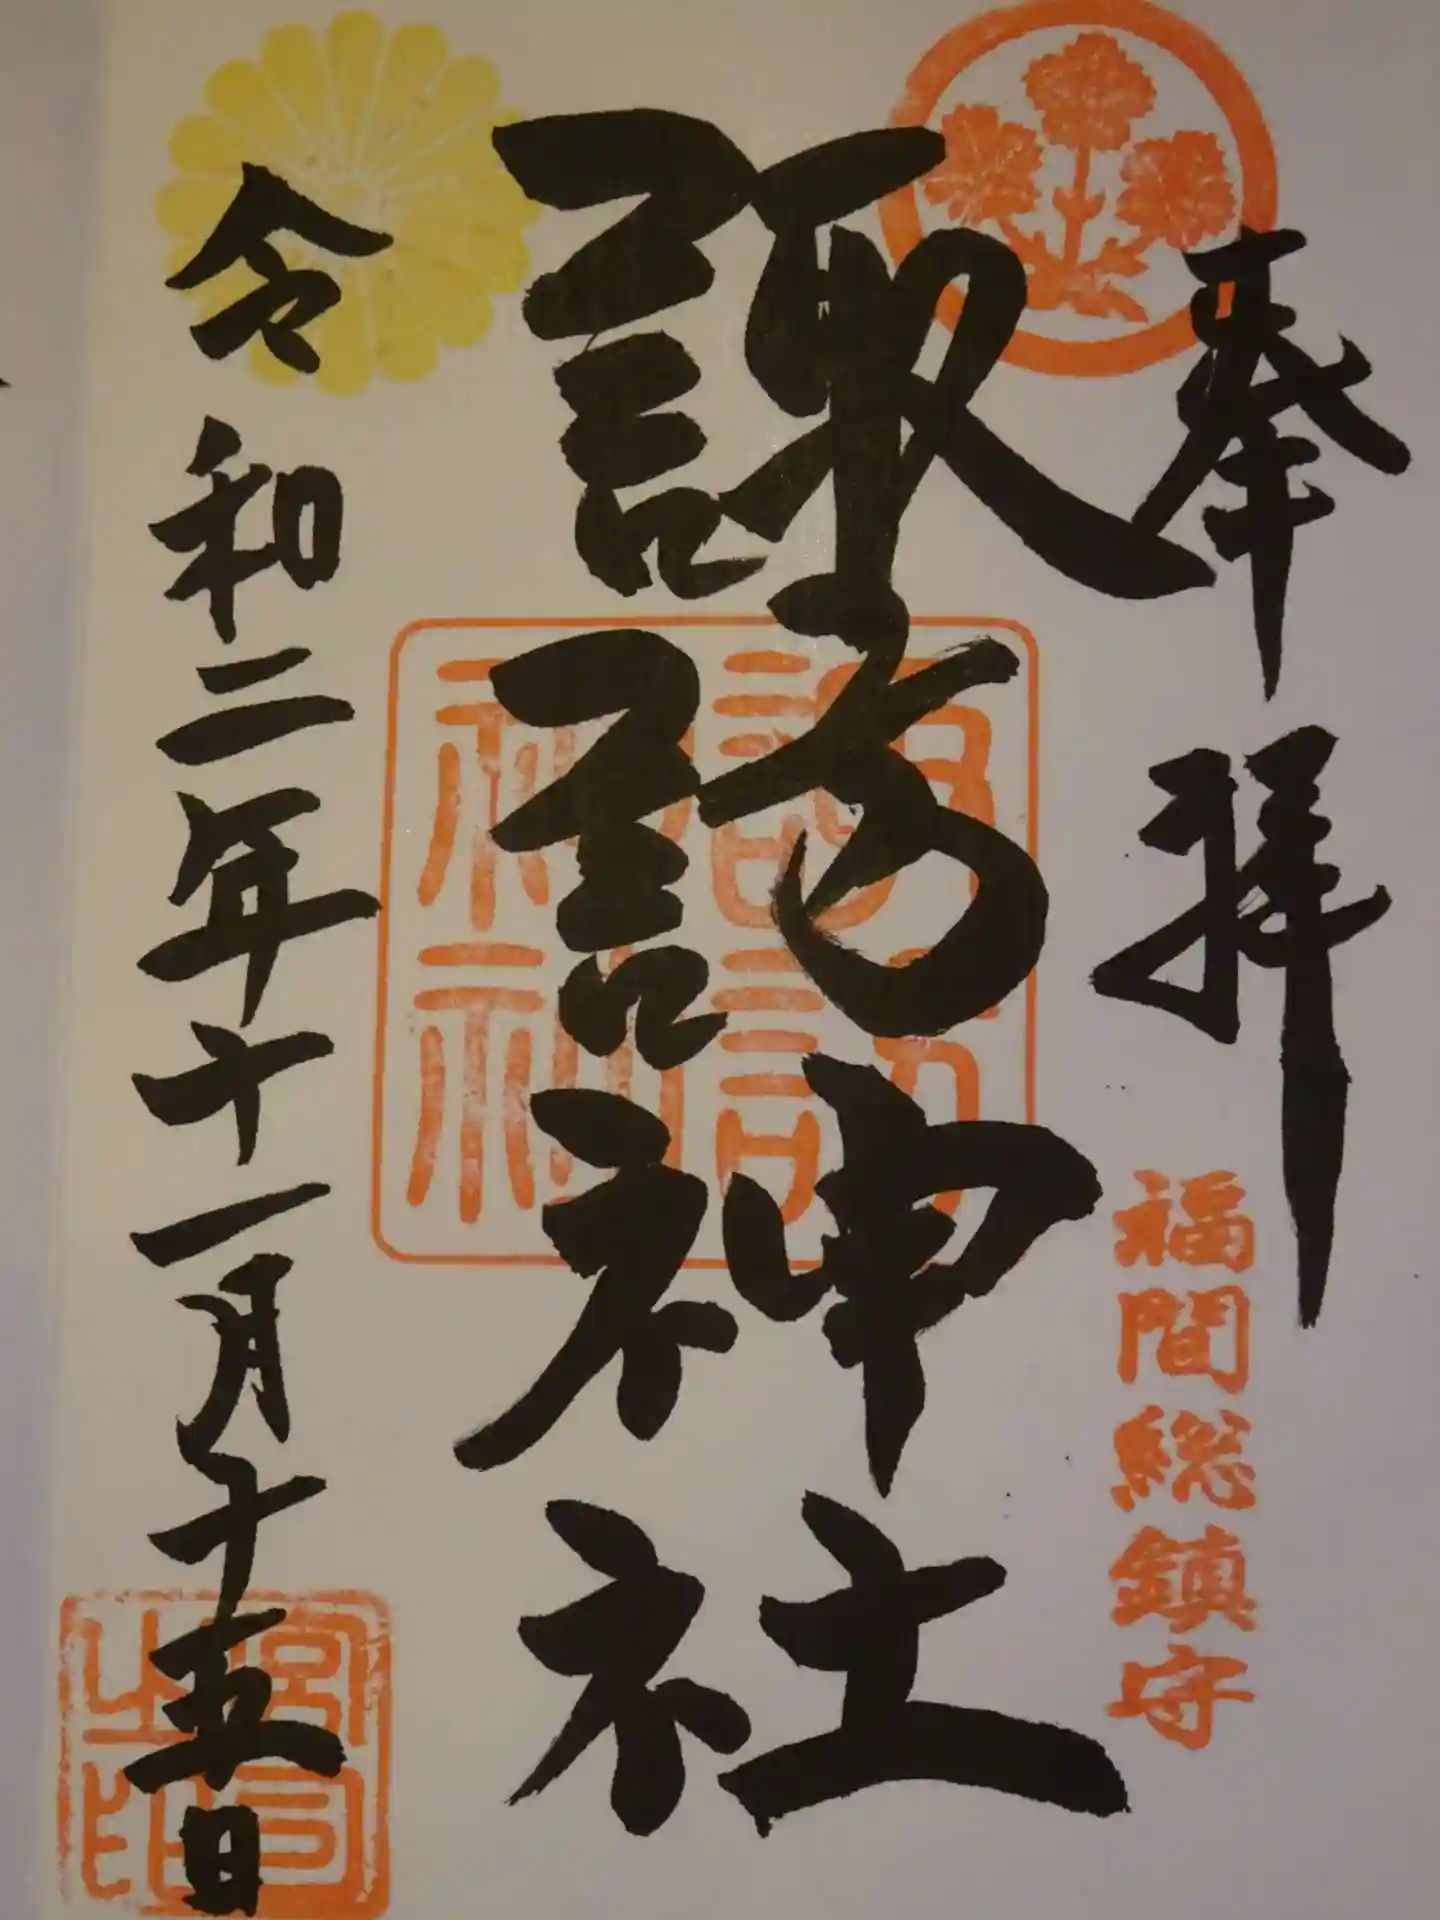 奉拝
福間総鎮守
諏訪神社
諏訪
神社
令和二年十一月十五日
宮司
之印